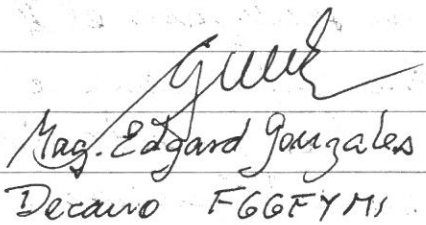 Mag. Edgard Gonzales
Decano FGGFYMS